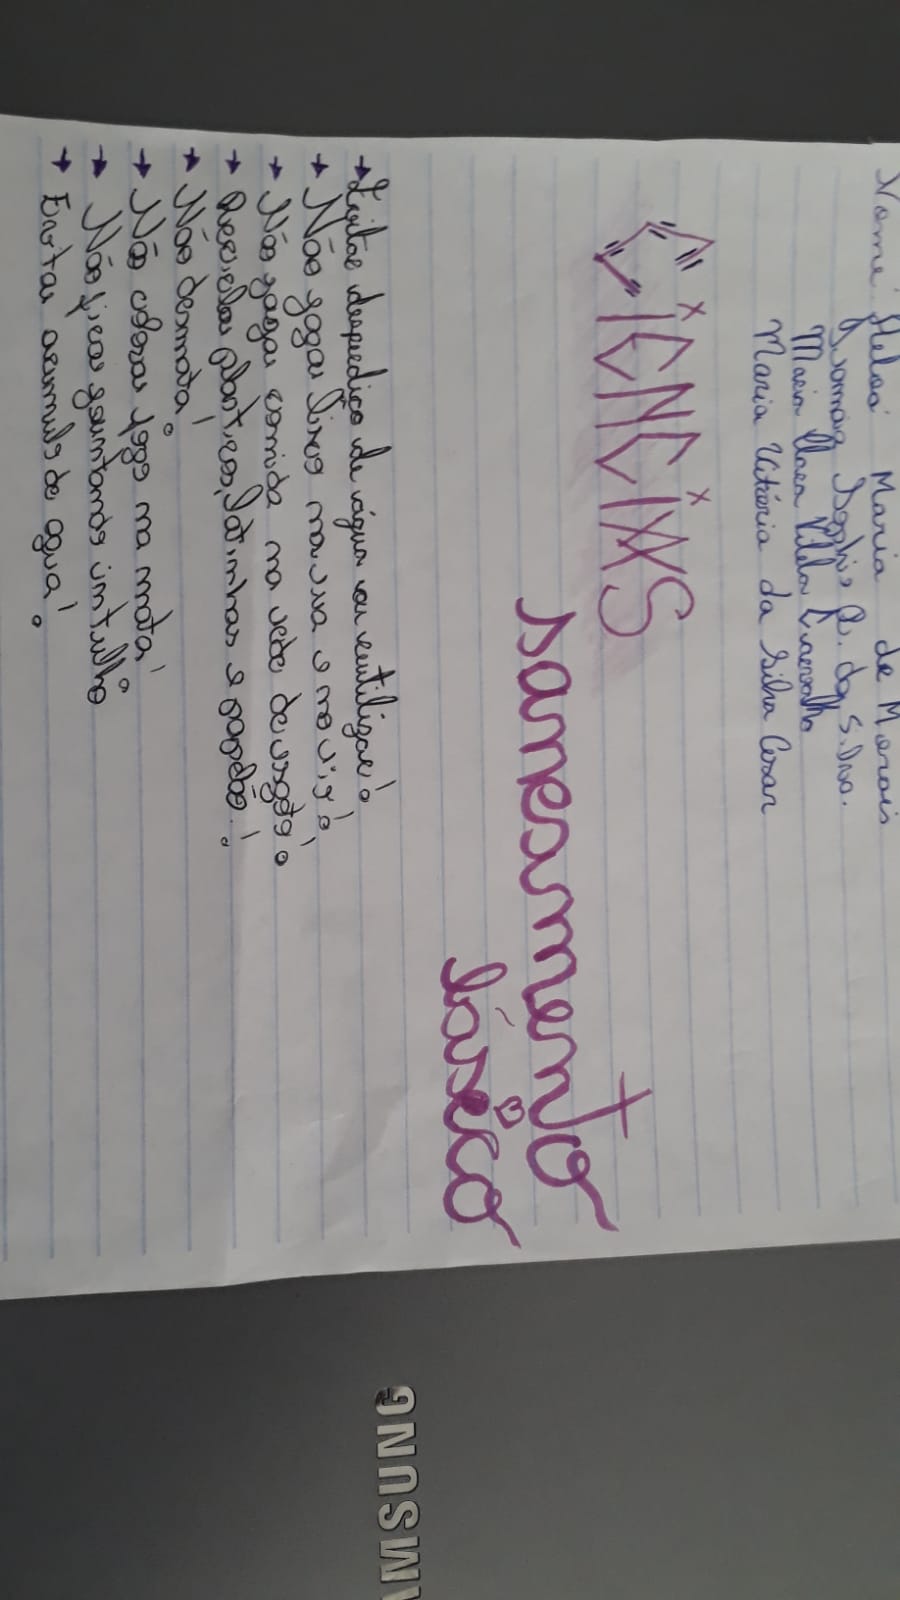 Nome: Heloá Maria de Morais
Sophie R. dos S. Silva.
Maria Clara Vilela Carvalho
Maria Vitória da Silva Cesar
CiENCiAS
saneamento
básico
→ Evitar desperdiço de água ou reutilizar!
→ Não jogar lixo na rua e no rio!
→ Não jogar comida na rede de esgoto!
→ Reciclar plásticos, latinhas e papelão!
→ Não desmata!
→ Não colocar fogo na mata!
→ Não ficar juntando intulho
→ Evitar acumulo de agua!
SAMSUNG